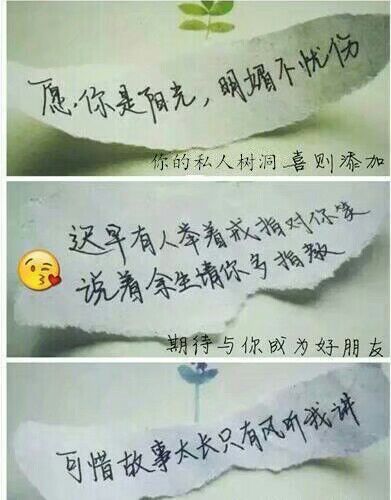 愿·你是阳光，明媚不忧伤
你的私人树洞喜则添加
迟早有人举着戒指对你笑
说着余生请你多指教
期待与你成为好朋友
可惜故事太长只有风听我讲